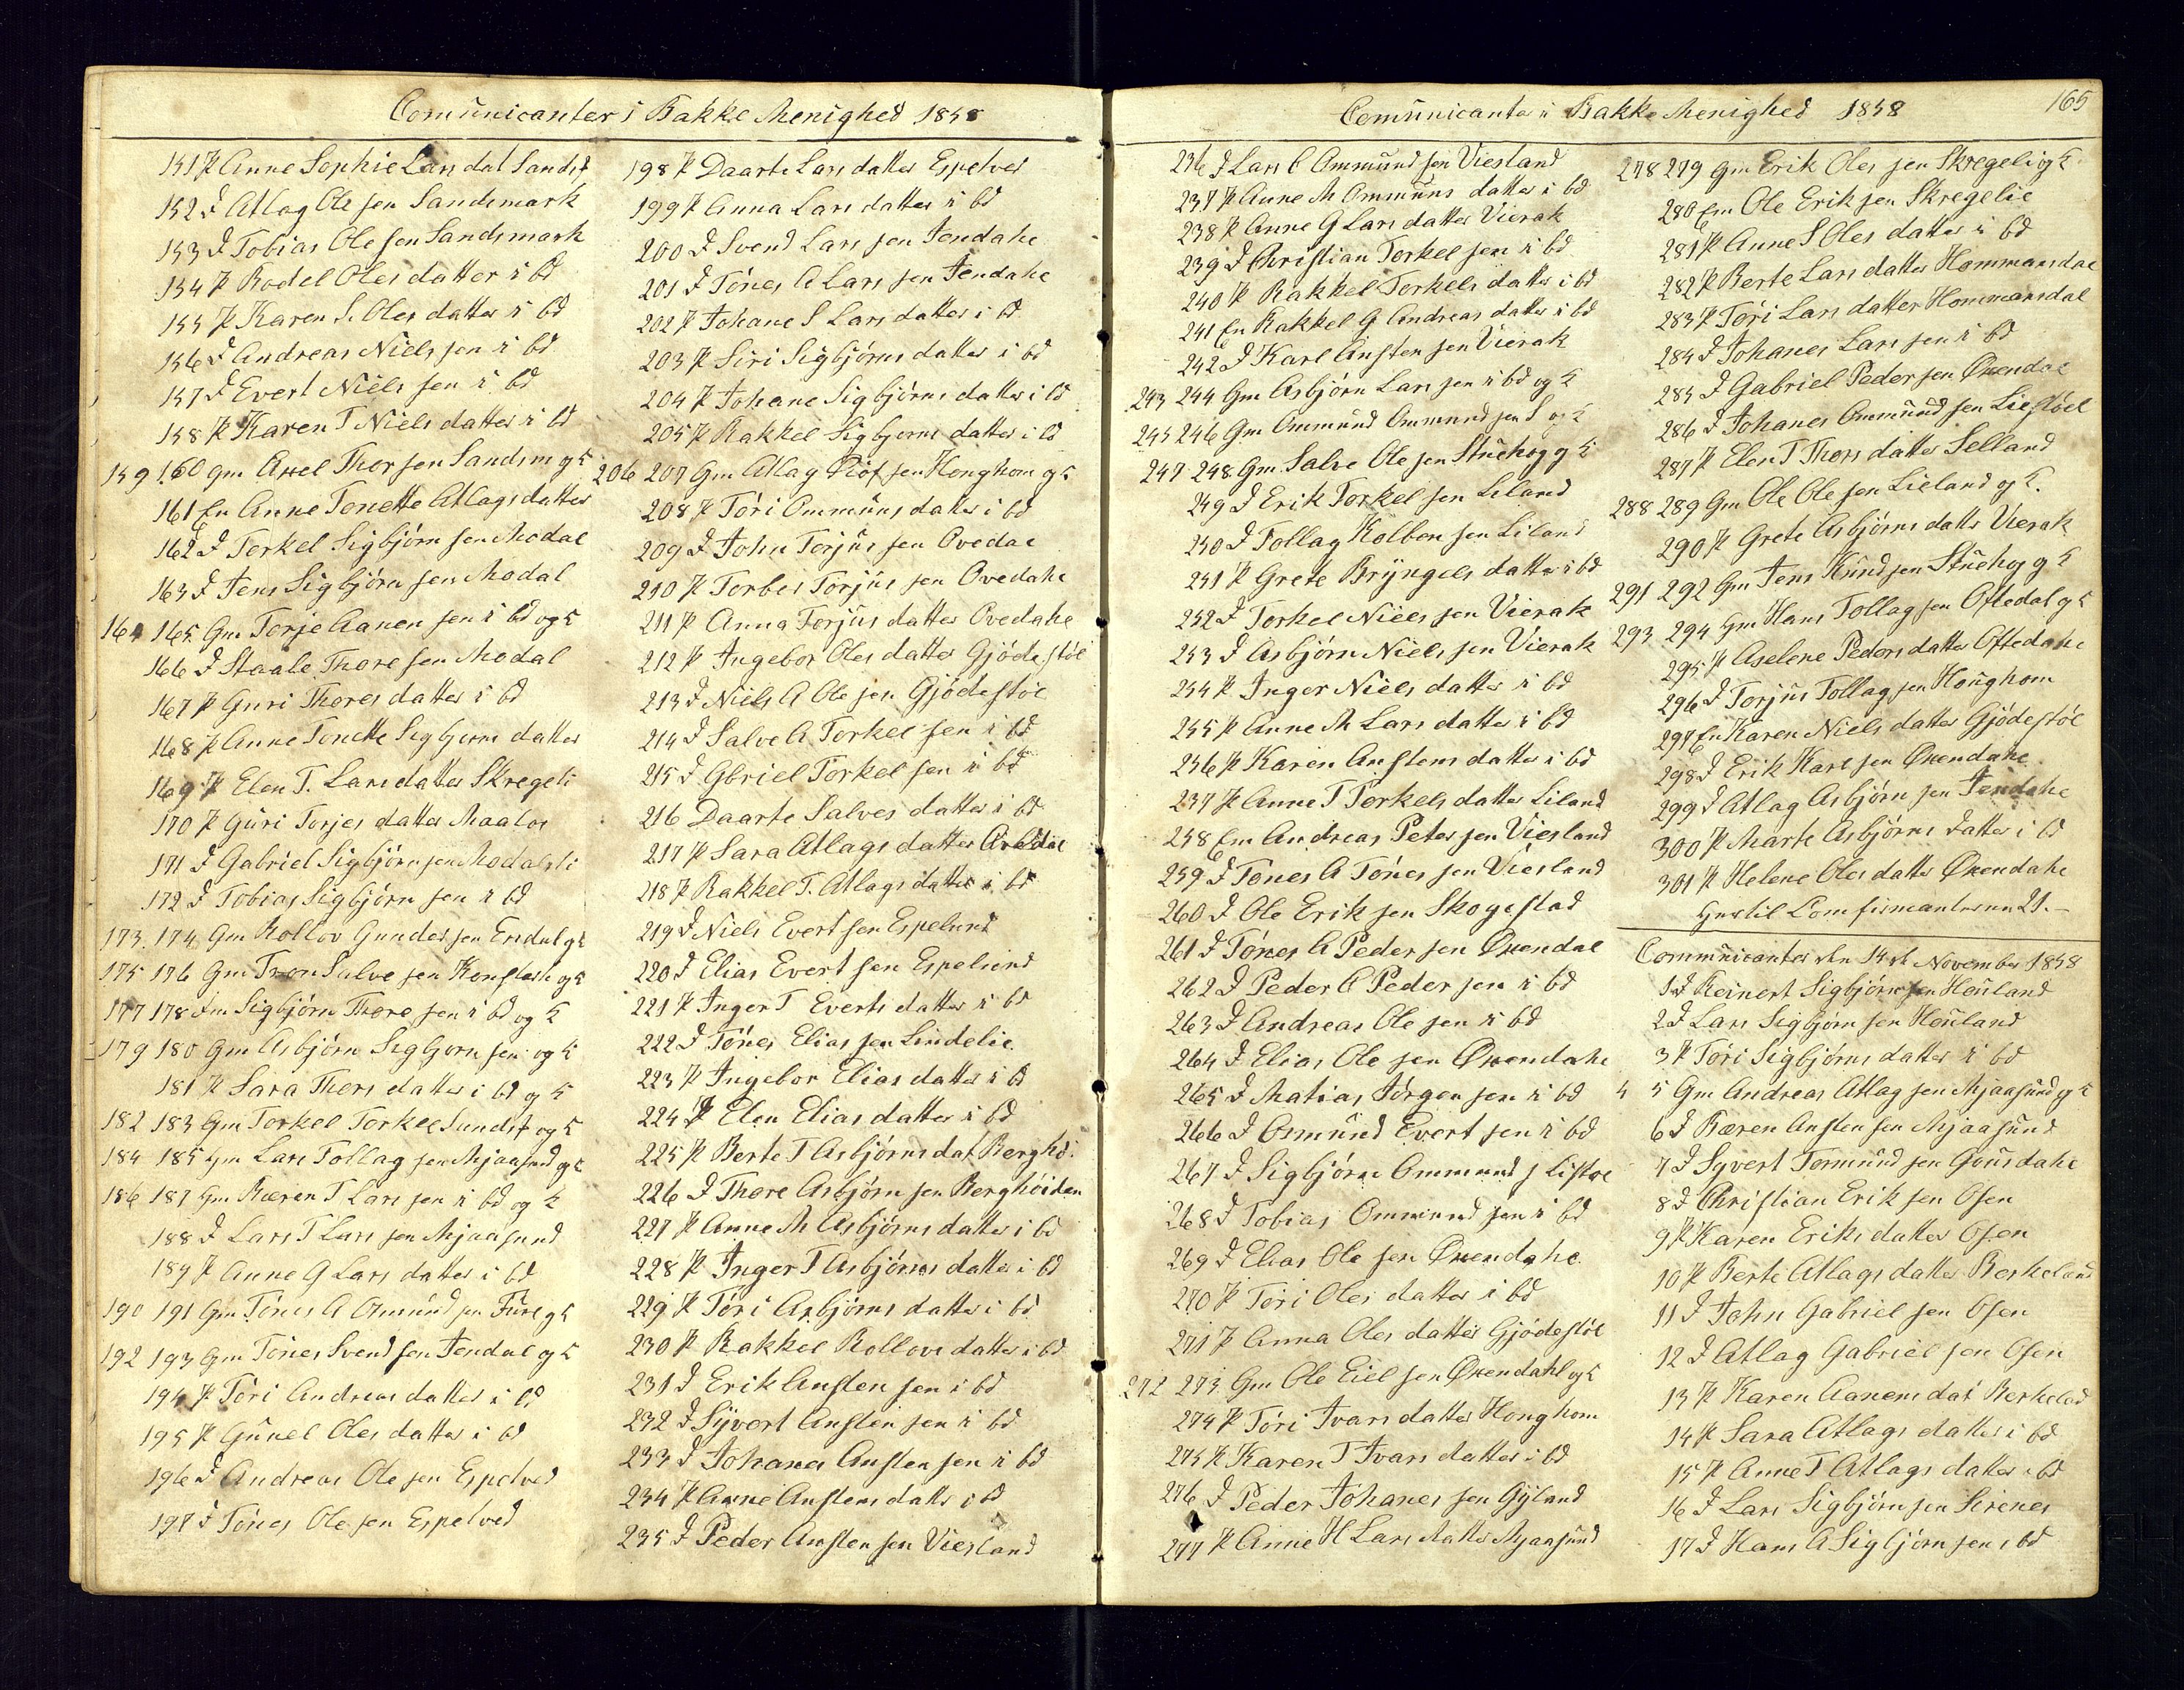 Comunicanter i Bakke Menighed 1858
151 P Anne Sophie Lars dat Sands
152 D Atlag Ole sen Sandsmark
153 D Tobias Ole sen Sandsmark
154 P Bodel Oles datter i bd
155 P Karen S. Oles datter i bd
156 D Andreas Niels sen i bd
157 D Evert Niels sen i bd
158 P Karen T Niels datter i bd
159 160 Gm Axel Thor sen Sandsm og K
161 En Anne Tonette Atlags datter
162 D Terkel Sigbjörn sen Modal
163 D Jens Sigbjörn sen Modal
164 165 Gm Terje Aanen sen i bd og K
166 D Staale Thore sen Modal
167 P Guri Thores datter i bd
168 P Anne Tonette Sigbjorns datter
169 P Elen T. Lars datter Skregeli
170 P Güri Torjes datter Maalos
171 D Gabriel Sigbjörn sen Modalsli
172 D Tobias Sigbjörn sen i bd
173 174 Gm Rollov Gunder sen Endal og K
175 176 Gm Tron Salve sen og K
177 178 Gm Sigbjörn Thore sen i bd og K
179 180 Gm Asbjörn Sigbjorn sen og K
181 P Sara Thors datter i bd og K
182 183 Gm Torkel Torkel Sunds og K
184 185 Gm Lars Tollag sen Mjaasund og K
186 187 Gm Bæren T Lars sen i bd og K
188 D Lars T Lars sen Mjaasund
189 P Anne G Lars datter i bd
190 191 Gm Tönes A Omünd sen Füre og K
192 193 Gm Tönes Svend sen Jendal og K
194 P Töri Andreas datter i bd
195 P Günel Oles datter i bd
196 D Andreas Ole sen Espetved
197 D Tönes Ole sen Espetved
198 P Daarte Lars datter Espetved
199 P Anna Lars datter i bd
200 D Svend Lars sen Jendahe
201 D Tönes A Lars sen Jendahe
202 P Johane S Lars datter i bd
203 P Siri Sigbjörns datter i bd
204 P Johane Sigbjörns datter i bd
205 P Rakkel Sigbjorns datter i bd
206 207 Gm Atlag Röf sen Honghom og K
208 P Töri Ommüns datter i bd
209 D John Torjüs sen Ovedal
210 P Torbes Torjüs sen Ovedahe
211 P Anna Torjüs datter Ovedahe
212 P Ingebor Oles datter Gjödestöl
213 D Niels A Ole sen Gjödestöl
214 D Salve A Torkel sen i bd
215 D Gbriel Torkel sen i bd
216 Daarte Salves datter i bd
217 P Sara Atlags datter Ovedal
218 P Rakkel T. Atlags datter i bd
219 D Niels Evert sen Espelund
220 D Elias Evert sen Espelund
221 P Inger T Everts datter i bd
222 D Tönes Elias sen Lindelie
223 P Ingebor Elias datter i bd
224 P Elen Elias datter i bd
225 P Berte T Asbjörns dat Berghö
226 D Thore Asbjörn sen Berghöiden
227 P Anne M Asbjörns datter i bd
228 P Inger T Asbjörns datter i bd
229 P Töri Asbjörns datter i bd
230 P Rakkel Rollovs datter i bd
231 D Erik Austen sen i bd
232 D Syvert Austen sen i bd
233 D Johanes Austen sen i bd
234 P Anne Austens datter i bd
235 D Peder Austen sen Viesland
Comünicanter i Bakke Menighed 1858
165
236 D Lars C Ommünd sen Viesland
237 P Anne M Ommüns datter i bd
238 P Anne G Lars datter Vierak
239 D Christian Torkel sen i bd
240 P Rakkel Torkels datter i bd
241 En Rakkel G Andreas datter i bd
242 D Karl Austen sen Vierak
243 244 Gm Asbjörn Lars sen i bd og K
245 246 Gm Ommünd Ommund sen S og K
247 248 Gm Salve Ole sen Stuehog og K
249 D Erik Torkel sen Liland
250 D Tollag Kolben sen Liland
251 P Grete Bryngels datter i bd
252 D Torkel Niels sen Vierak
253 D Asbjörn Niels sen Vierak
254 P Inger Niels datter i bd
255 P Anne M Lars datter i bd
256 P Karen Austens datter i bd
257 P Anne T Torkels datter Liland
258 Em Andreas Peter sen Viesland
259 D Tönes A Tönes sen Viesland
260 D Ole Erik sen Skogestad
261 D Tönes A Peder sen Øxendal
262 D Peder C Peder sen i bd
263 D Andreas Ole sen i bd
264 D Elias Ole sen Øxendahe
265 D Matias Jörgen sen i bd
266 D Osmünd Evert sen i bd
267 D Sigbjörn Ommund s Listöe
268 D Tobias Ommund sen i bd
269 D Elias Ole sen Øxendahe
270 P Töri Oles datter i bd
271 P Anna Oles datter Gjödestöl
272 273 Gm Ole Eiel sen Øxendahl og K
274 P Töri Ivars datter Honghom
275 P Karen T Ivars datter i bd
276 D Peder Johanes sen Gÿland
277 P Anne H Lars datter Mjaasünd
278 279 Gm Erik Oles sen Skregeli og K
280 Em Ole Erik sen Skregelie
281 P Anne S Oles datter i bd
282 P Berte Lars datter Hommansdal
283 P Töri Lars datter Hommansdal
284 D Johanes Lars sen i bd
285 D Gabriel Peder sen Øxendal
286 D Johanes Ommünd sen Liestöel
287 P Elen T Thors datter Selland
288 289 Gm Ole Ole sen Lieland og K.
290 P Grete Asbjörns datter Vierak
291 292 Gm Jens Künd sen Stüehog og K
293 294 Gm Hans Tollag sen Oftedal og K
295 P Aselene Peders datter Oftedahe
296 D Torjüs Tollag sen Houghom
297 En Karen Niels datter Gjödestöl
298 D Erik Karl sen Øxendahe
299 D Atlag Asbjörn sen Jendahe
300 P Marte Asbjörns datter i bd
301 P Helene Oles datter Øxendahe
21.
Commünicanter den 14de November 1858
1 D Reinert Sigbjörn sen Heüland
2 D Lars Sigbjörn sen Heüland
3 P Töri Sigbjörns datter i bd
4 5 Gm Andreas Atlag sen Mjaasünd og K
6 D Bæren Austen sen Mjaasünd
7 D Syvert Tormünd sen Gousdahe
8 D Christian Erik sen Osen
9 P Karen Eriks datter Osen
10 P Berte Atlags datter Berkeland
11 D John Gabriel sen Osen
12 D Atlag Gabriel sen Osen
13 P Karen Aanens dat Berkelad
14 P Sara Atlags datter i bd
15 P Anne T Atlags datter i bd
16 D Lars Sigbjörn sen Sirenes
17 D Hans A Sigbjörn sen i bd